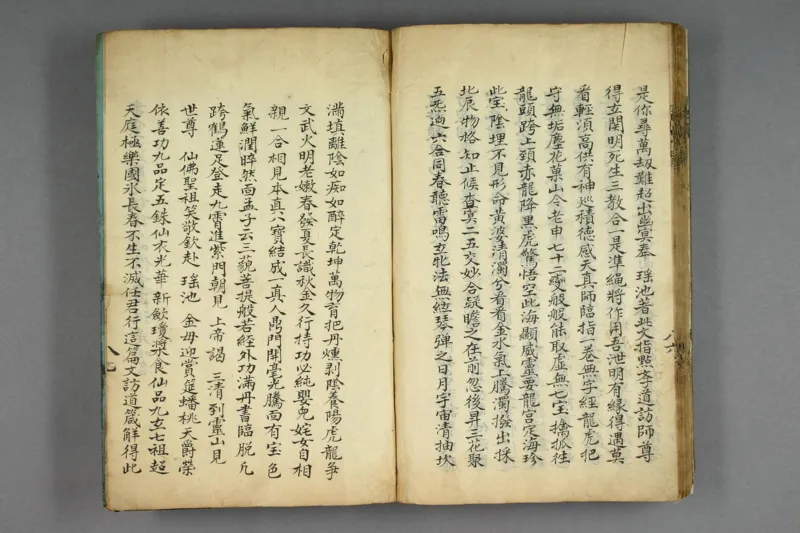 是你尋萬刼難超出幽冥奉　瑶池著此文指點李道訪師尊
得立閗明死生三教合一是準繩將作用吾泄明有緣得遇莫
看輕湏高供有神巡積德感天真師臨指一卷無字經龍虎把
守無垢塵花菓山今老申七十二變般般能取虛無七宝擒孤往
龍頭跨上頸赤龍降黑虎驚悟空此海顯威靈要龍宮定海珍
此宝陰埋不見形命黃婆清濁分看看金水氣上騰濁撥出採
北辰物格知止候杳冥二五交妙合疑瞻之在前忽後昇三花聚
五炁逈六合同春聽雷鳴立牝法無絃琴彈之日月宇宙清抽坎
滿填離陰如痴如醉定乾坤萬物育把丹煉剥陰養陽虎龍爭
文武火明老嫩春發夏長識秋金久行持功必純嬰兒姹女自相
親一合相見本真八寶結成一真人鼎門開毫光騰面有宝色
氣鮮潤睟然面孟子云三藐菩提般若經外功滿丹書臨脫凡
跨鶴運足登走九霄進紫門朝見　上帝謁　三清到靈山見
世尊　仙佛聖祖笑敬欽赴　瑶池　金母迎賞筵蟠桃天爵榮
依善功九品定五銖仙衣光華新飲瓊漿食仙品九玄七祖超
天庭極樂國永長春不生不滅任君行這篇文訪道箴觧得此